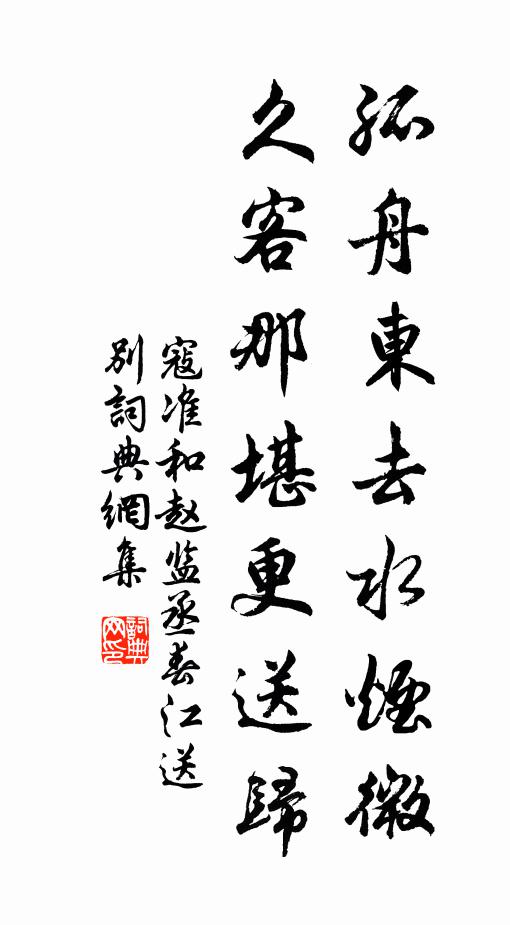 孤舟東去水煙微
久客那堪更送歸
寇准和赵监丞春江送
别詞典網集
詞典
网印